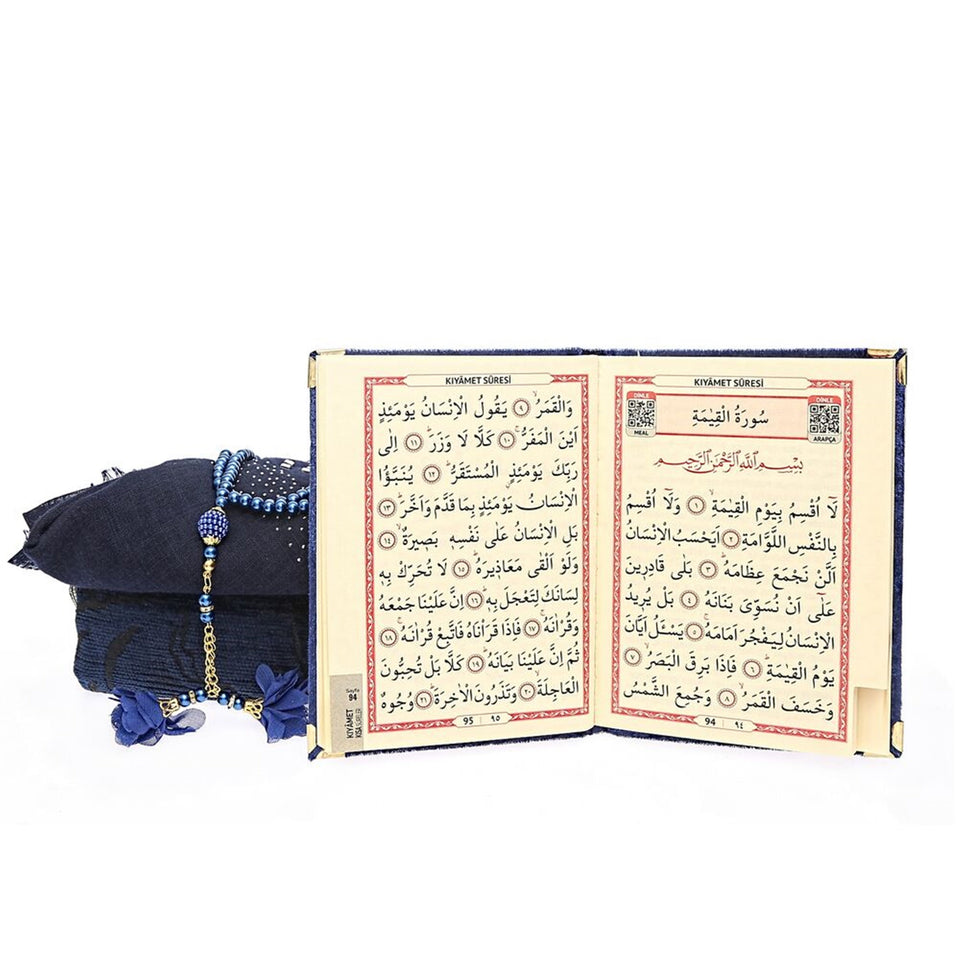 KIYÂMET SÛRESİ
DİNLE
MEAL
سُورَةُ الْقِيٰمَةِ
DİNLE
ARAPÇA
بِسْمِ اللّٰهِ الرَّحْمٰنِ الرَّحِيمِ
لَٓا اُقْسِمُ بِيَوْمِ الْقِيٰمَةِۙ ﴿١﴾ وَلَٓا اُقْسِمُ
بِالنَّفْسِ اللَّوَّامَةِ ﴿٢﴾ اَيَحْسَبُ الْاِنْسَانُ
اَلَّنْ نَجْمَعَ عِظَامَهُۜ ﴿٣﴾ بَلٰى قَادِرِينَ
عَلٰٓى اَنْ نُسَوِّيَ بَنَانَهُ ﴿٤﴾ بَلْ يُرِيدُ
الْاِنْسَانُ لِيَفْجُرَ اَمَامَهُۚ ﴿٥﴾ يَسْـَٔلُ اَيَّانَ
يَوْمُ الْقِيٰمَةِۜ ﴿٦﴾ فَاِذَا بَرِقَ الْبَصَرُۙ ﴿٧﴾
وَخَسَفَ الْقَمَرُۙ ﴿٨﴾ وَجُمِعَ الشَّمْسُ
94 ٩٤
KIYÂMET SÛRESİ
وَالْقَمَرُۙ ﴿٩﴾ يَقُولُ الْاِنْسَانُ يَوْمَئِذٍ
اَيْنَ الْمَفَرُّۚ ﴿١٠﴾ كَلَّا لَا وَزَرَۜ ﴿١١﴾ اِلٰى
رَبِّكَ يَوْمَئِذٍ الْمُسْتَقَرُّۜ ﴿١٢﴾ يُنَبَّؤُا
الْاِنْسَانُ يَوْمَئِذٍ بِمَا قَدَّمَ وَاَخَّرَۜ ﴿١٣﴾
بَلِ الْاِنْسَانُ عَلٰى نَفْسِهِ بَصِيرَةٌۙ ﴿١٤﴾
وَلَوْ اَلْقٰى مَعَاذِيرَهُۜ ﴿١٥﴾ لَا تُحَرِّكْ بِهِ
لِسَانَكَ لِتَعْجَلَ بِهِۜ ﴿١٦﴾ اِنَّ عَلَيْنَا جَمْعَهُ
وَقُرْاٰنَهُۚ ﴿١٧﴾ فَاِذَا قَرَأْنَاهُ فَاتَّبِعْ قُرْاٰنَهُۚ ﴿١٨﴾
ثُمَّ اِنَّ عَلَيْنَا بَيَانَهُۜ ﴿١٩﴾ كَلَّا بَلْ تُحِبُّونَ
الْعَاجِلَةَۙ ﴿٢٠﴾ وَتَذَرُونَ الْاٰخِرَةَۜ ﴿٢١﴾ وُجُوهٌ
95 ٩٥
Sayfa
94
KIYÂMET
KISA SÛRELER